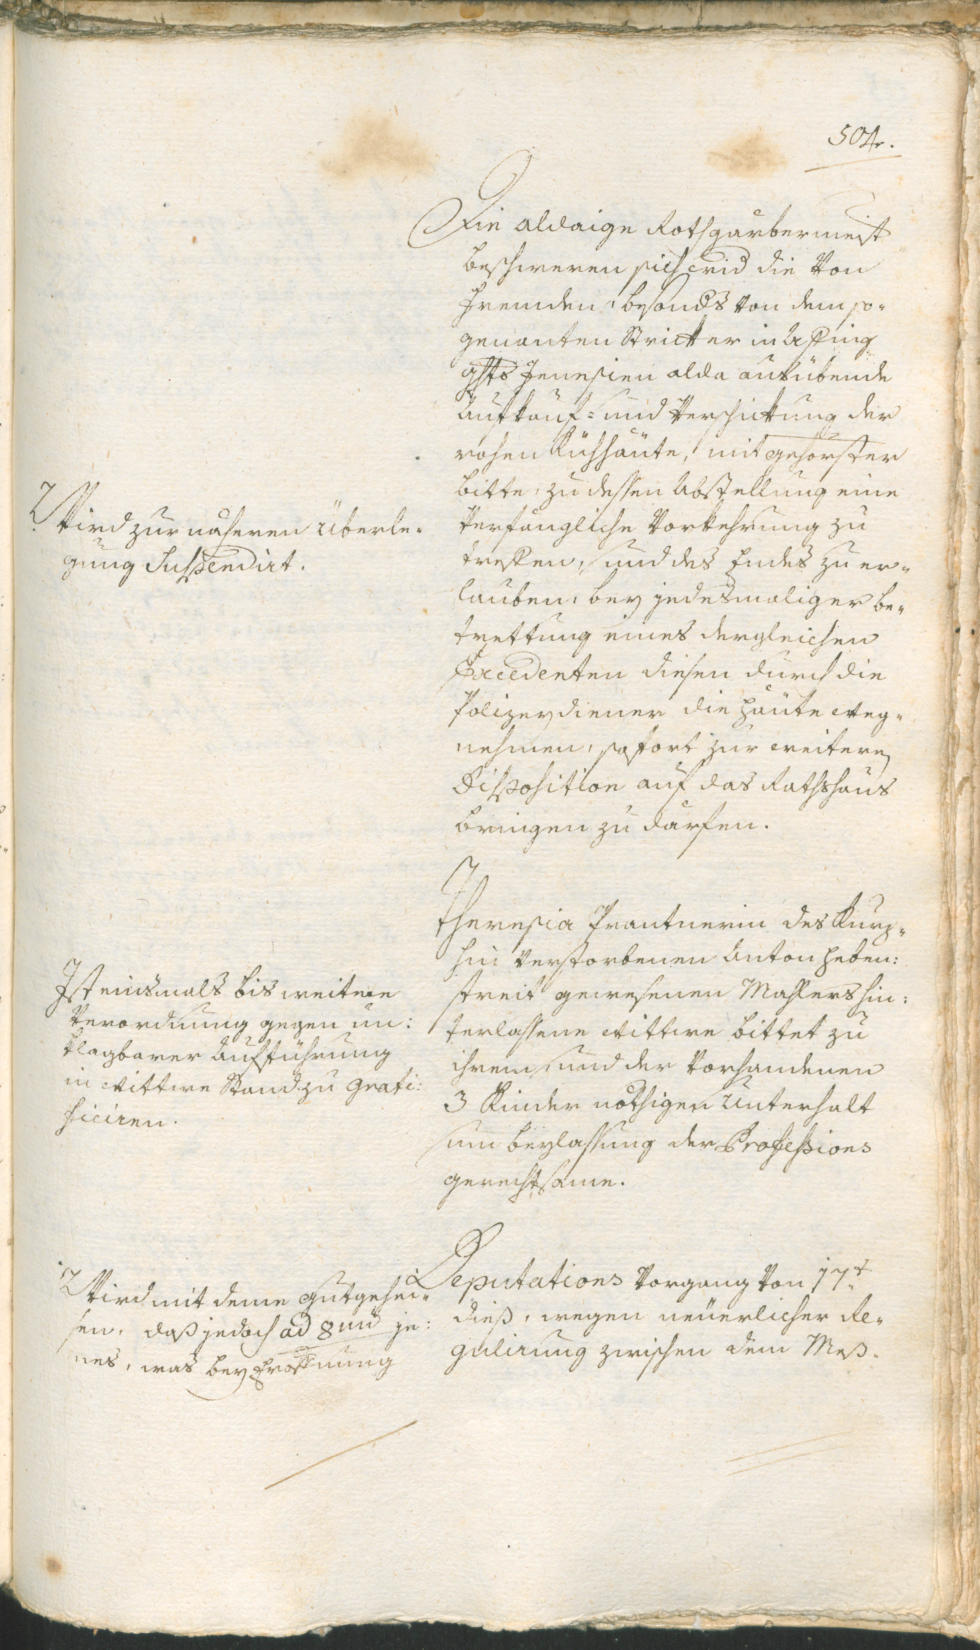 504.
Die aldaige Rothgärbermeist
beschweren sich wid die von
Fremden, besonds von dem so-
genanten Stricker in Afing
ghts Jenesien alda ausübende
Aufkauf- und Verschickung der
rohen Kühhäute, mit gehorster
bitte, zu dessen Abstellung eine
Verfängliche Vorkehrung zu
treffen, und des Endes zu er-
lauben, bey jedesmaliger be-
trettung eines dergleichen
Excedenten diesen durch die
Polizeydiener die Häute weg-
nehmen, sofort zur weitern
Disposition auf das Rathshaus
bringen zu därfen.
Wird zur näheren Überle-
gung Suspendirt.
Theresia Prantnerin des kurz-
hin verstorbenen Anton Heben-
streit gewesenen Mahlers hin-
terlassene Wittwe bittet zu
ihrem, und der vorhandenen
3 Kinder nöthigen Unterhalt
um beylassung der Professions
gerechtsame.
Ist einsmals bis weitere
Verordnung gegen un-
klagbarer Aufführung
in Wittwe Stand zu grati-
ficiren.
Deputations Vorgang von 17t
dieß, wegen neuerlicher Re-
gulirung zwischen dem Meß-
Wird mit deme gutgehei-
sen, daß jedoch ad 8um je-
nes, was bey Eröffnung